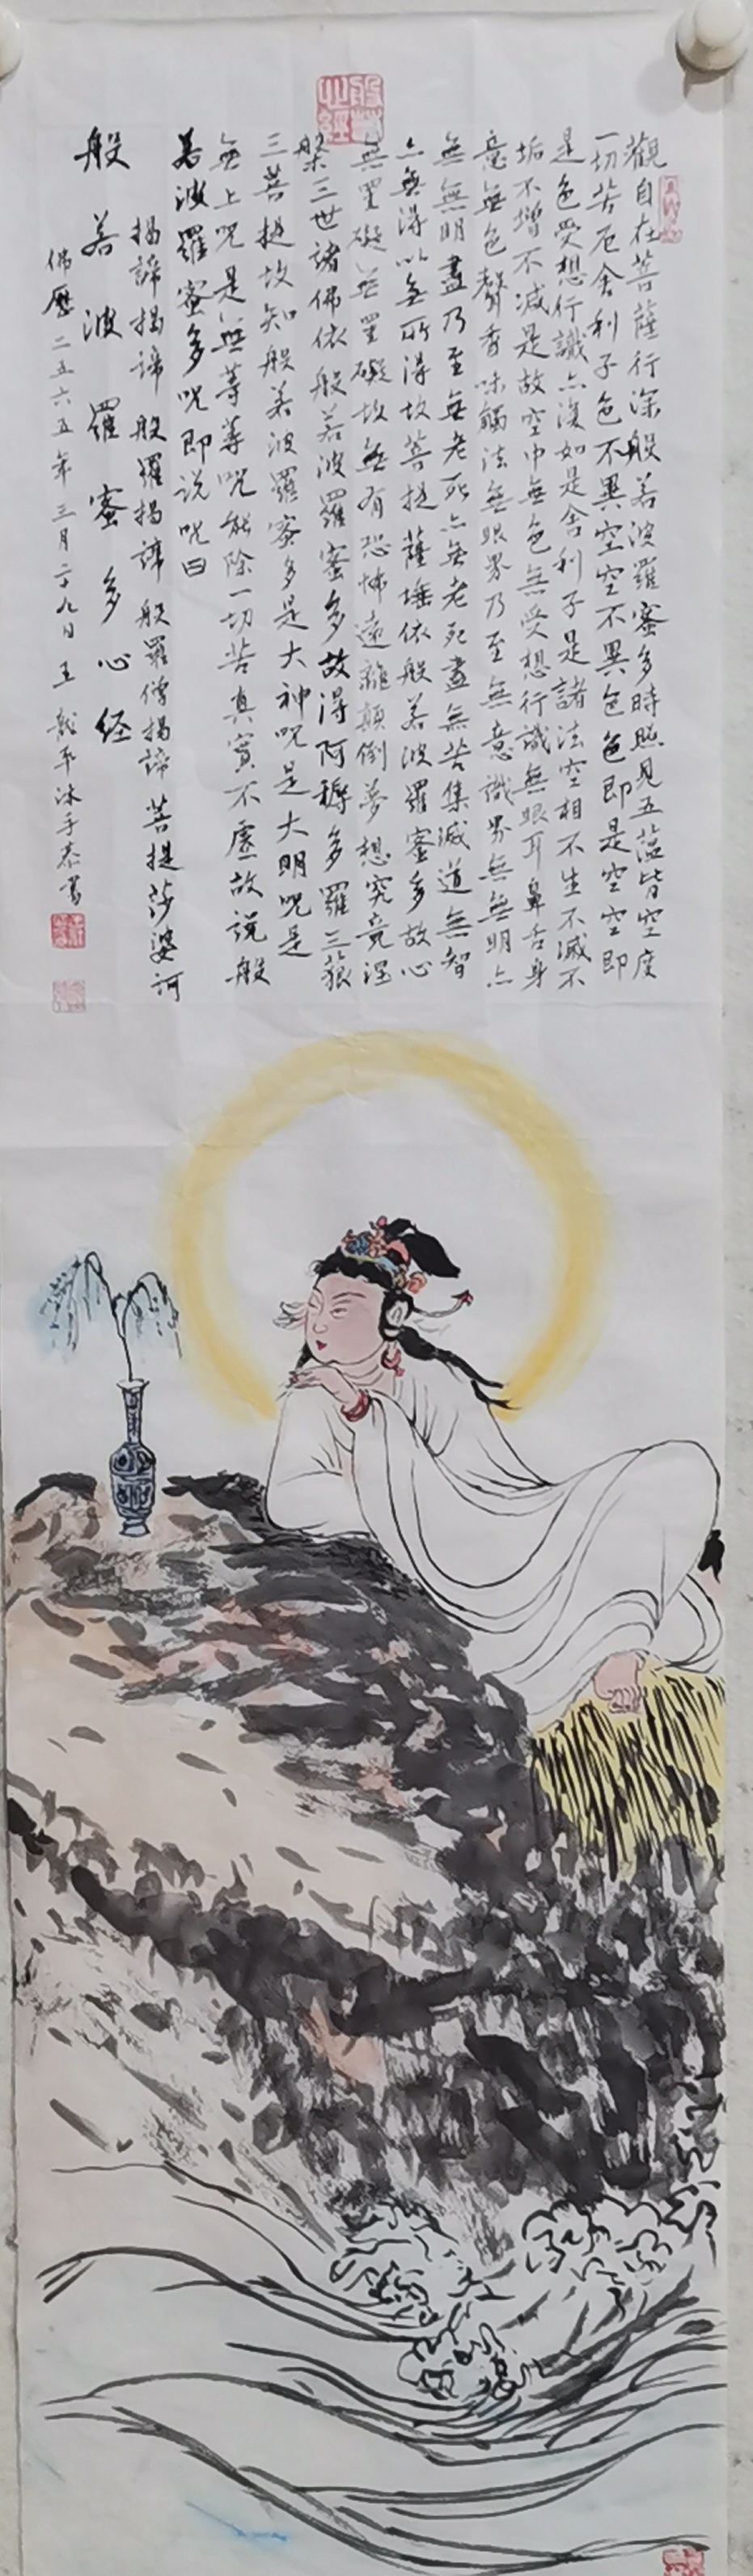 般若心經
觀自在菩薩行深般若波羅蜜多時照見五蕴皆空度
一切苦厄舍利子色不異空空不異色色即是空空即
是色受想行識亦復如是舍利子是諸法空相不生不滅不
垢不增不减是故空中無色無受想行識無眼耳鼻舌身
意無色聲香味觸法無眼界乃至無意識界無無明亦
無無明盡乃至無老死亦無老死盡無苦集滅道無智
亦無得以無所得故菩提薩埵依般若波羅蜜多故心
無罣礙無罣礙故無有恐怖遠離顛倒夢想究竟涅
槃三世諸佛依般若波羅蜜多故得阿耨多羅三藐
三菩提故知般若波羅蜜多是大神呪是大明呪是
無上呪是無等等呪能除一切苦真實不虛故説般
若波羅蜜多呪即説呪曰
揭諦揭諦般羅揭諦般羅僧揭諦菩提莎婆訶
般若波羅蜜多心经
佛歷二五六五年三月二十九日王平沐手恭書